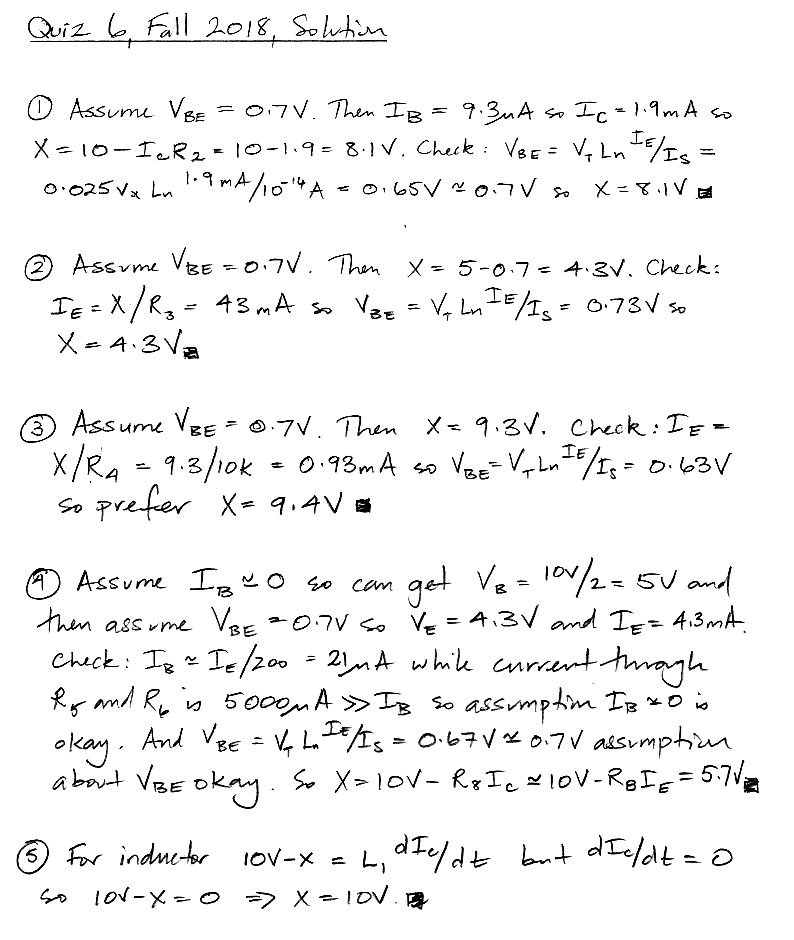 Quiz 6, Fall 2018, Solution
① Assume V_BE = 0.7V. Then I_B = 9.3μA so I_C = 1.9mA so
X = 10 - I_C R_2 = 10 - 1.9 = 8.1V. Check: V_BE = V_T Ln I_E/I_S =
0.025V x Ln 1.9mA/10^-14A = 0.65V ≃ 0.7V so X = 8.1V
② Assume V_BE = 0.7V. Then X = 5-0.7 = 4.3V. Check:
I_E = X/R_3 = 43mA so V_BE = V_T Ln I_E/I_S = 0.73V so
X = 4.3V
③ Assume V_BE = 0.7V. Then X = 9.3V. Check: I_E =
X/R_4 = 9.3/10k = 0.93mA so V_BE = V_T Ln I_E/I_S = 0.63V
so prefer X = 9.4V
④ Assume I_B ≃ 0 so can get V_B = 10V/2 = 5V and
then assume V_BE = 0.7V so V_E = 4.3V and I_E = 4.3mA.
Check: I_B ≃ I_E/200 = 21μA while current through
R_5 and R_6 is 5000μA >> I_B so assumption I_B ≃ 0 is
okay. And V_BE = V_T Ln I_E/I_S = 0.67V ≃ 0.7V assumption
about V_BE okay. So X = 10V - R_8 I_C ≃ 10V - R_8 I_E = 5.7V
⑤ For inductor 10V-X = L_1 dI_C/dt but dI_C/dt = 0
so 10V-X = 0 ⇒ X = 10V.